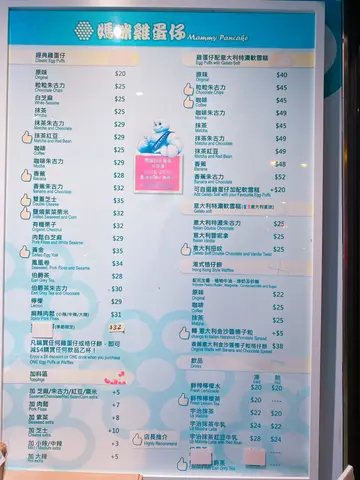 媽咪雞蛋仔 Mommy Pancake
經典雞蛋仔
Classic Egg Puffs
原味 $20
Original
粒粒朱古力 $25
Chocolate Chips
白芝麻 $25
White Sesame
抹茶 $25
Matcha
抹茶朱古力 $29
Matcha and Chocolate
抹茶紅豆 $29
Matcha and Red Bean
咖啡 $25
Coffee
咖啡朱古力 $29
Mocha
香蕉 $28
Banana
香蕉朱古力 $32
Banana and Chocolate
雙重芝士 $31
Double Cheese
鹽燒紫菜粟米
Salted Seaweed and Corn
有機栗子 $29
Organic Chestnut
肉鬆白芝麻 $29
Pork Floss and White Sesame
黃金 $35
Salted Egg Yolk
鳳凰卷 $34
Seaweed, Pork Floss and Sesame
伯爵茶 $28
Earl Grey Tea
伯爵茶朱古力 $30
Earl Grey Tea and Chocolate
檸檬 $29
Lemon
麻辣肉鬆 (小辣/中辣/大辣) $31
Spicy Pork Floss
$32
凡購買任何雞蛋仔或格仔餅，即可
減$4購買任何飲品乙杯！
Enjoy a $4 discount on ONE drink when you purchase
ONE Egg Puffs or Waffles
加料區
Toppings
加 芝麻/朱古力/紅豆/粟米 +5
加 肉鬆 +7
Pork Floss
加 紫菜 +8
Seaweed
加 芝士 +10
Cheese
加 小辣/中辣 +3
加 大辣 +5
雞蛋仔配意大利特濃軟雪糕
Egg Puffs with Gelato Soft
原味 $40
Original
粒粒朱古力 $45
Chocolate Chips
咖啡 $45
Coffee
咖啡朱古力 $49
Mocha
抹茶 $45
Matcha
抹茶朱古力 $49
Matcha and Chocolate
抹茶紅豆 $49
Matcha and Red Bean
香蕉 $48
Banana
香蕉朱古力 $52
Banana and Chocolate
可自選雞蛋仔加配軟雪糕 +$20
Add Gelato Soft with your Favourite Egg Puffs
意大利特濃軟雪糕
Gelato soft
意大利特濃朱古力 $25
Italian Double Chocolate
意大利雲呢拿 $25
Italian Vanilla
意大利扭紋 $25
Gelato Soft Double Chocolate and Vanilla Twist
港式格仔餅
Hong Kong Style Waffles
原味 $22
Original
朱古力 $28
Chocolate
咖啡 $25
Coffee
抹茶 $28
Matcha
+$5
$38
飲品
Drinks
凍 熱
鮮檸檬水 $20 $20
Fresh Lemonade
鮮檸檬茶 $20 $20
宇治抹茶 $22 $20
Uji Matcha
宇治抹茶牛乳 $24 $22
Uji Matcha Latte
宇治抹茶紅豆牛乳 $28 $24
店長推介
Highly Recommend